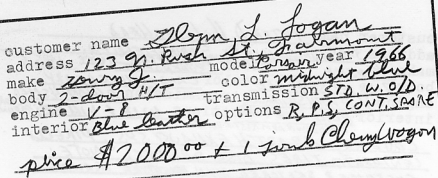 customer name Glenn L. Logan
address 123 N. Rush St., Fairmont
make model year 1966
body 2-door H/T color midnight blue
engine V-8 transmission STD. W. O/D.
interior Blue leather options R, P.S, CONT. SPARE
price $2000.00 + 1 junk Chevy Wagon